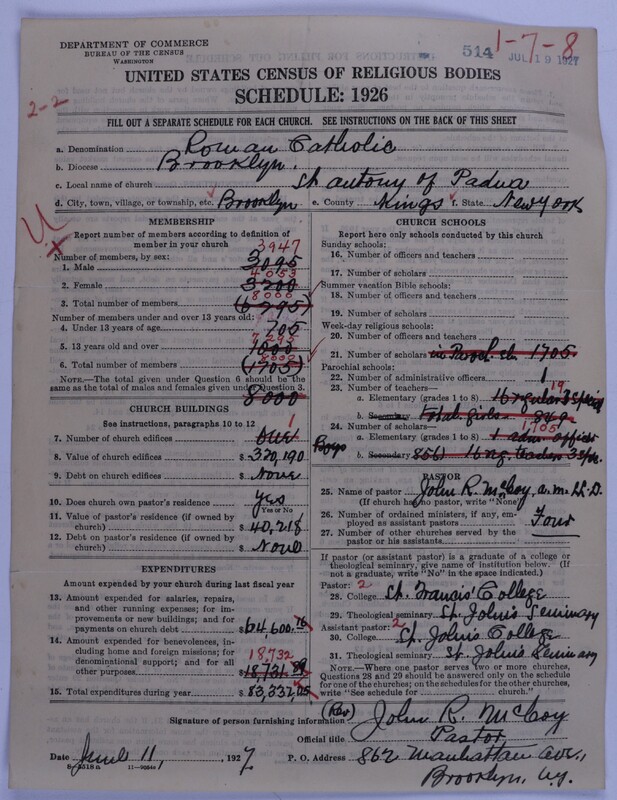 DEPARTMENT OF COMMERCE
BUREAU OF THE CENSUS
WASHINGTON
514 JUL 19 1927
1-7-8
2-2
UNITED STATES CENSUS OF RELIGIOUS BODIES
SCHEDULE: 1926
FILL OUT A SEPARATE SCHEDULE FOR EACH CHURCH. SEE INSTRUCTIONS ON THE BACK OF THIS SHEET
a. Denomination Roman Catholic
b. Diocese Brooklyn.
c. Local name of church St antony of Padua
d. City, town, village, or township, etc. Brooklyn e. County Kings f. State New York
MEMBERSHIP
Report number of members according to definition of
member in your church
Number of members, by sex: 3947
1. Male 3095
4053
2. Female 3200
8000
3. Total number of members (6295)
Number of members under and over 13 years old:
4. Under 13 years of age 705
7295
5. 13 years old and over 1000
8000
6. Total number of members (1705)
NOTE.—The total given under Question 6 should be the
same as the total of males and females given under Question 3.
8000
CHURCH BUILDINGS
See instructions, paragraphs 10 to 12
7. Number of church edifices One 1
8. Value of church edifices $ 320,190
9. Debt on church edifices $ None
10. Does church own pastor's residence? Yes
(Yes or No)
11. Value of pastor's residence (if owned by
church) $ 40,218
12. Debt on pastor's residence (if owned by
church) $ None
EXPENDITURES
Amount expended by your church during last fiscal year
13. Amount expended for salaries, repairs,
and other running expenses; for im-
provements or new buildings; and for
payments on church debt $ 64,600.76
14. Amount expended for benevolences,
including home and foreign missions; for
denominational support; and for all
18,732
other purposes $ 18,731.89
15. Total expenditures during year $ 83,332
CHURCH SCHOOLS
Report here only schools conducted by this church
Sunday schools:
16. Number of officers and teachers
17. Number of scholars
Summer vacation Bible schools:
18. Number of officers and teachers
19. Number of scholars
Week-day religious schools:
20. Number of officers and teachers
21. Number of scholars in Paroch. sch. 1705
Parochial schools:
22. Number of administrative officers 1
23. Number of teachers— 19
a. Elementary (grades 1 to 8) 16 regular 3 special
b. Secondary Total girls 849
24. Number of scholars— 1,705
a. Elementary (grades 1 to 8) 1 adm. officer
Boys b. Secondary 856) 16 reg. teachers 3 spec.
PASTOR
25. Name of pastor John R. McCoy, a.m. LL.D.
(If church has no pastor, write "None")
26. Number of ordained ministers, if any, em-
ployed as assistant pastors Four
27. Number of other churches served by the
pastor or his assistants
If pastor (or assistant pastor) is a graduate of a college or
theological seminary, give name of institution below. (If
not a graduate, write "No" in the space indicated.)
Pastor: 2
28. College St. Francis' College
29. Theological seminary St. John's Seminary
Assistant pastor: 2
30. College St. John's College
31. Theological seminary St. John's Seminary
NOTE.—Where one pastor serves two or more churches,
Questions 28 and 29 should be answered only on the schedule
for one of the churches; on the schedules for the other churches,
write "See schedule for church."
Signature of person furnishing information (Rev) John R. McCoy
Official title Pastor
Date June 11, 1927 P. O. Address 862 Manhattan Ave.,
Brooklyn, Ny.